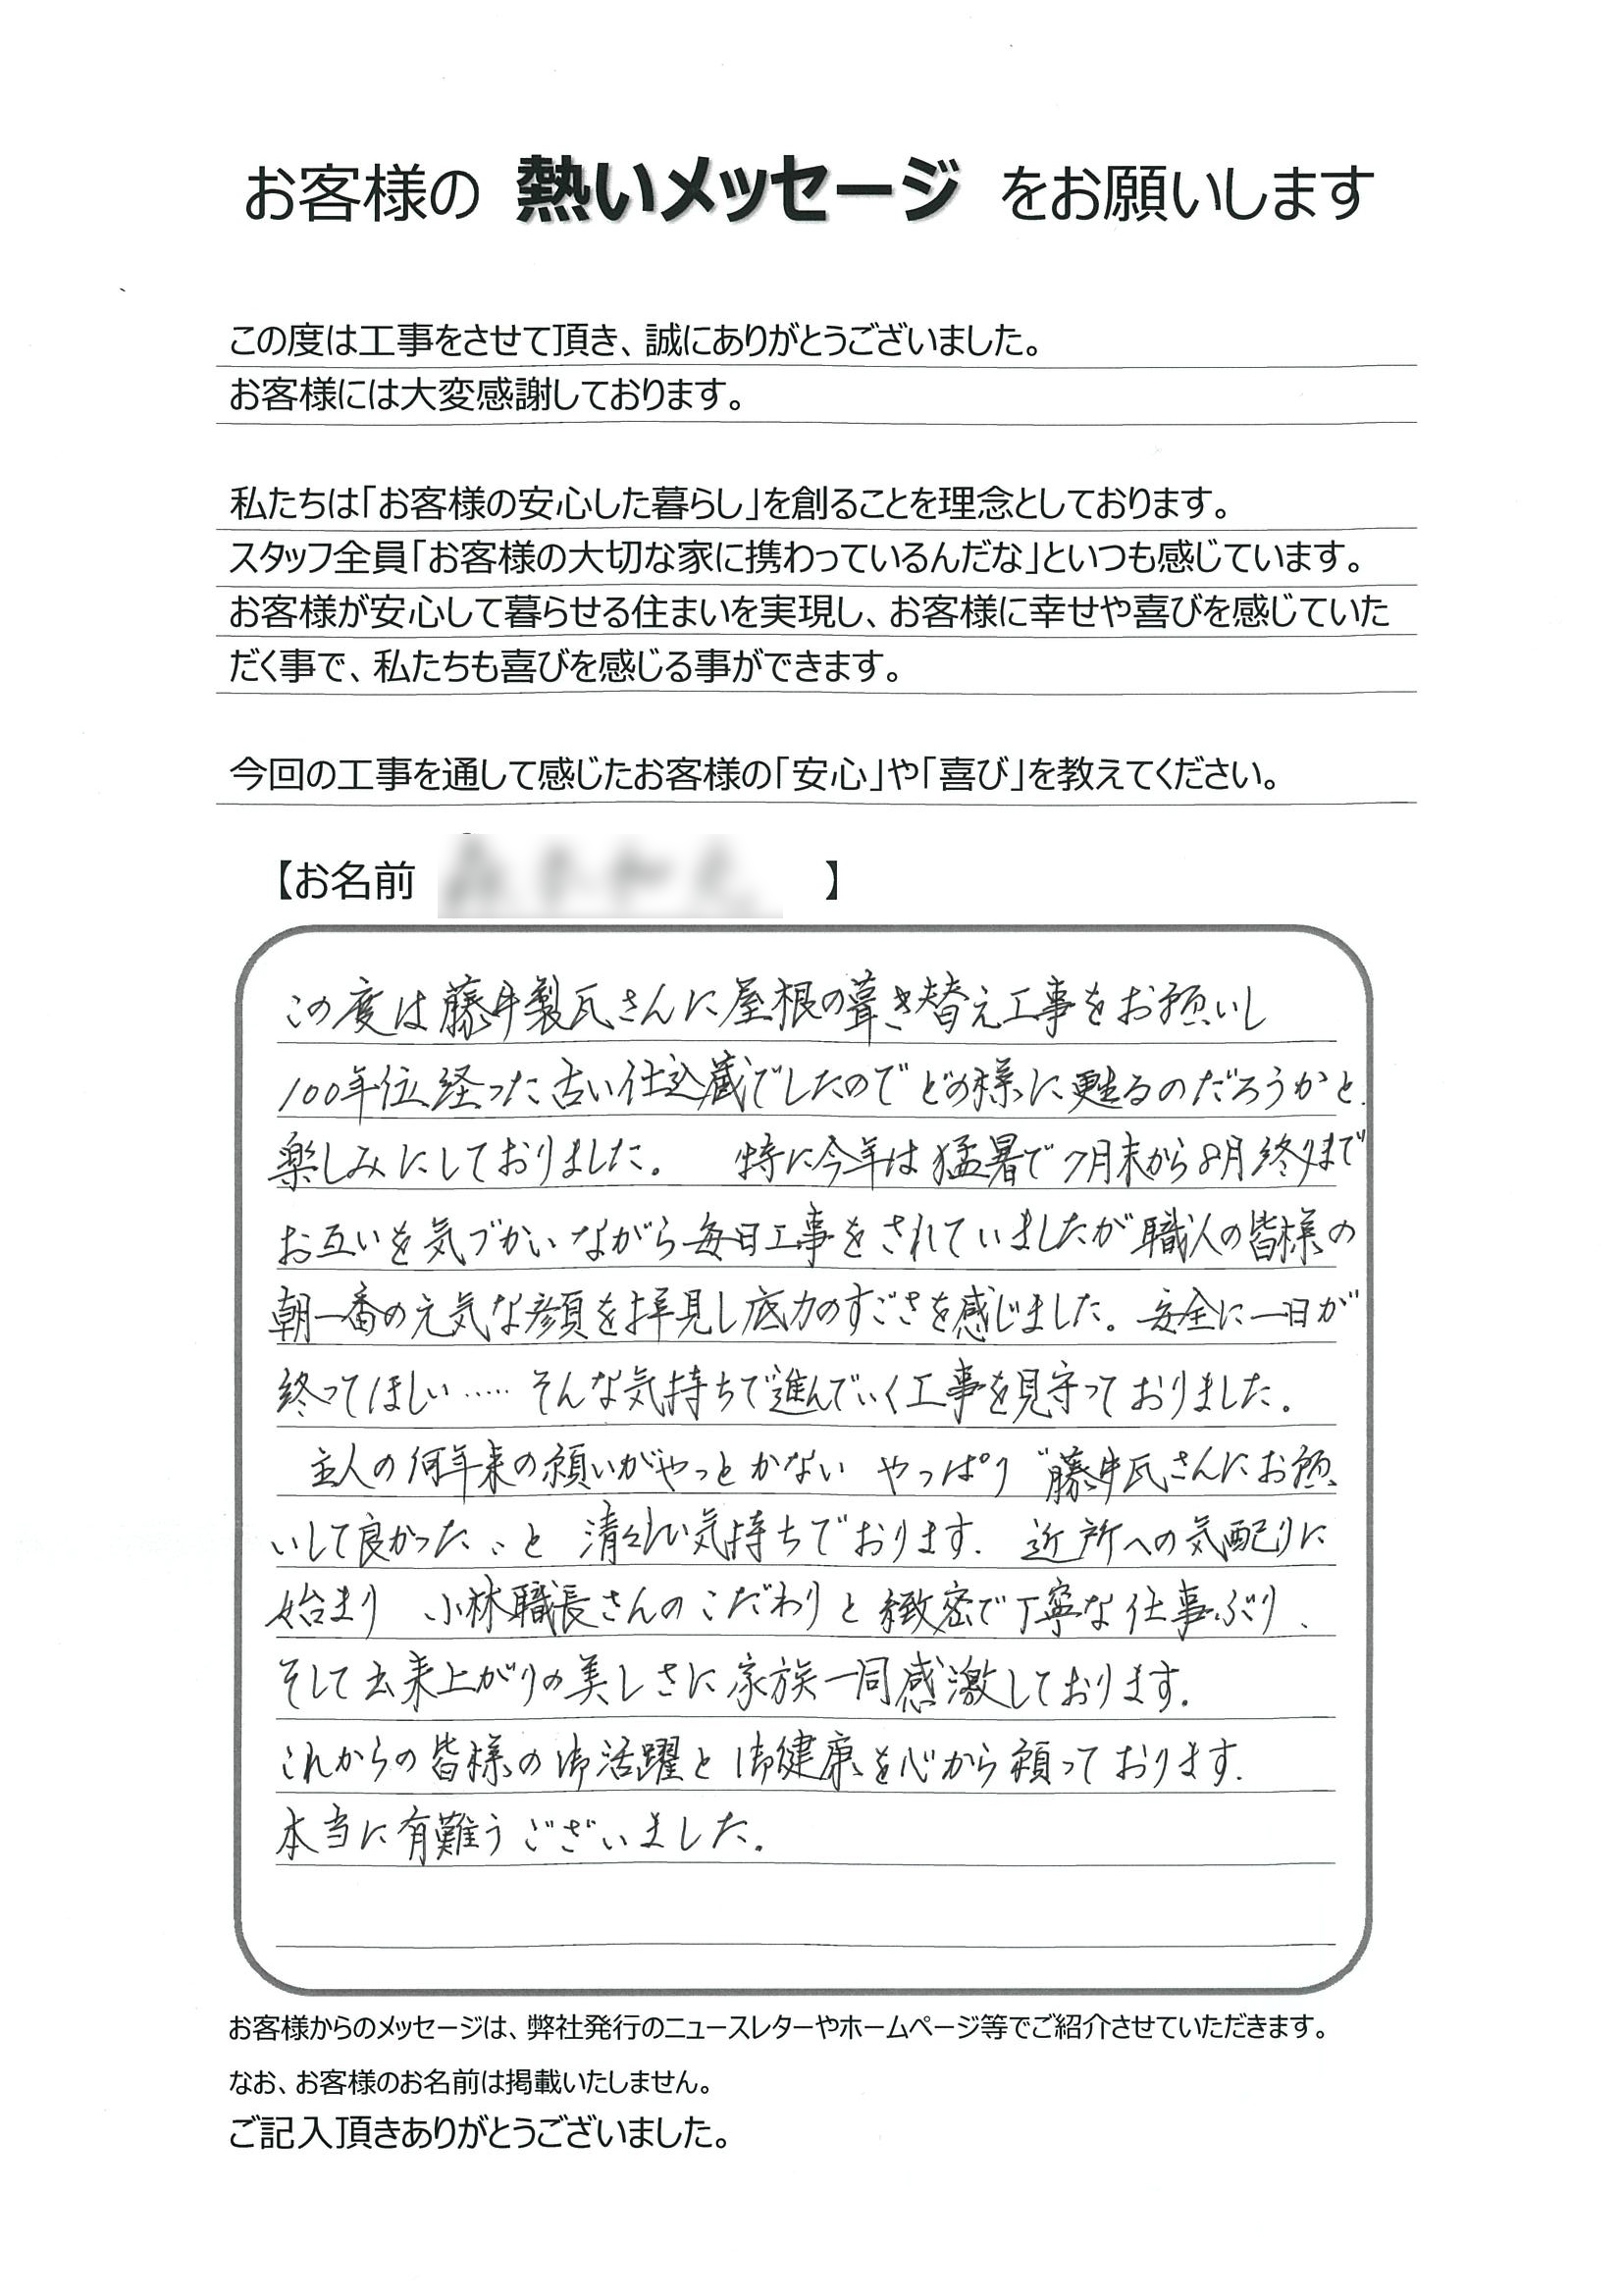 お客様の 熱いメッセージ をお願いします
この度は工事をさせて頂き、誠にありがとうございました。
お客様には大変感謝しております。
私たちは「お客様の安心した暮らし」を創ることを理念としております。
スタッフ全員「お客様の大切な家に携わっているんだな」といつも感じています。
お客様が安心して暮らせる住まいを実現し、お客様に幸せや喜びを感じていた
だく事で、私たちも喜びを感じる事ができます。
今回の工事を通して感じたお客様の「安心」や「喜び」を教えてください。
【お名前 】
この度は藤井製瓦さんに屋根の葺き替え工事をお願いし
100年位経った古い仕込蔵でしたのでどの様に甦るのだろうかと
楽しみにしておりました。 特に今年は猛暑で7月末から8月終りまで
お互いを気づかいながら毎日工事をされていましたが職人の皆様の
朝一番の元気な顔を拝見し底力のすごさを感じました。安全に一日が
終ってほしい‥‥‥そんな気持ちで進んでいく工事を見守っておりました。
主人の何年来の願いがやっとかない やっぱり〝藤井瓦さんにお願
いして良かった〟と 清々しい気持ちでおります。 近所への気配りに
始まり 小林職長さんのこだわりと緻密で丁寧な仕事ぶり、
そして出来上がりの美しさに家族一同感激しております。
これからの皆様の御活躍と御健康を心から願っております。
本当に有難うございました。
お客様からのメッセージは、弊社発行のニュースレターやホームページ等でご紹介させていただきます。
なお、お客様のお名前は掲載いたしません。
ご記入頂きありがとうございました。